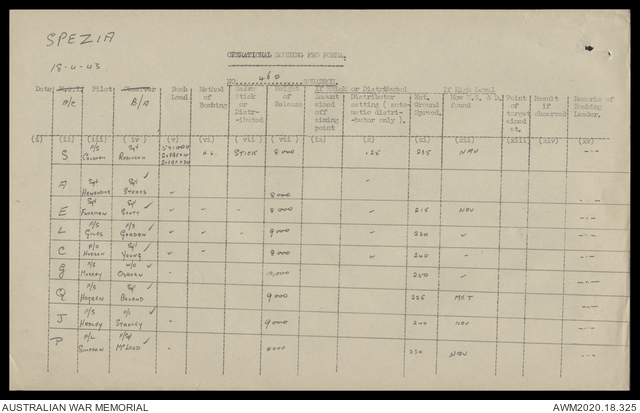 SPEZIA
18-4-43
OPERATIONAL BOMBING PRO FORMA.
NO. 460 SQUADRON.
Date A/C Pilot Observer B/A Bomb Load Method of Bombing Salvo Stick or Distr-ibuted Height of Release If Stick or Distributed Amount aimed off aiming point Distributor setting (auto-matic distri-butor only). Met. Ground Speed. If High Level How W.S. & D. found Point of target aimed at. Result if observed Remarks of Bombing Leader.
(i) (ii) (iii) (iv) (v) (vi) (vii) (vii) (ix) (x) (xi) (xii) (xiii) (xiv) (xv)
S F/S Sgt Robinson H.L. STICK 8000 .25 235 NAV
A Sgt Sgt Stokes 8000
E Sgt Sgt Scott 8000 215 NAV
L F/S Giles F/S Gordon 9000 230
C P/O Hudson Sgt Young 8000 240
G F/S Murray W/O Osborn 10,000 250
Q F/S Sgt 9000 225 MET
J F/S Hadley Stanley 9000 240 NAV
P F/L Simpson McLeod 8000 230 NAV
AUSTRALIAN WAR MEMORIAL
AWM2020.18.325